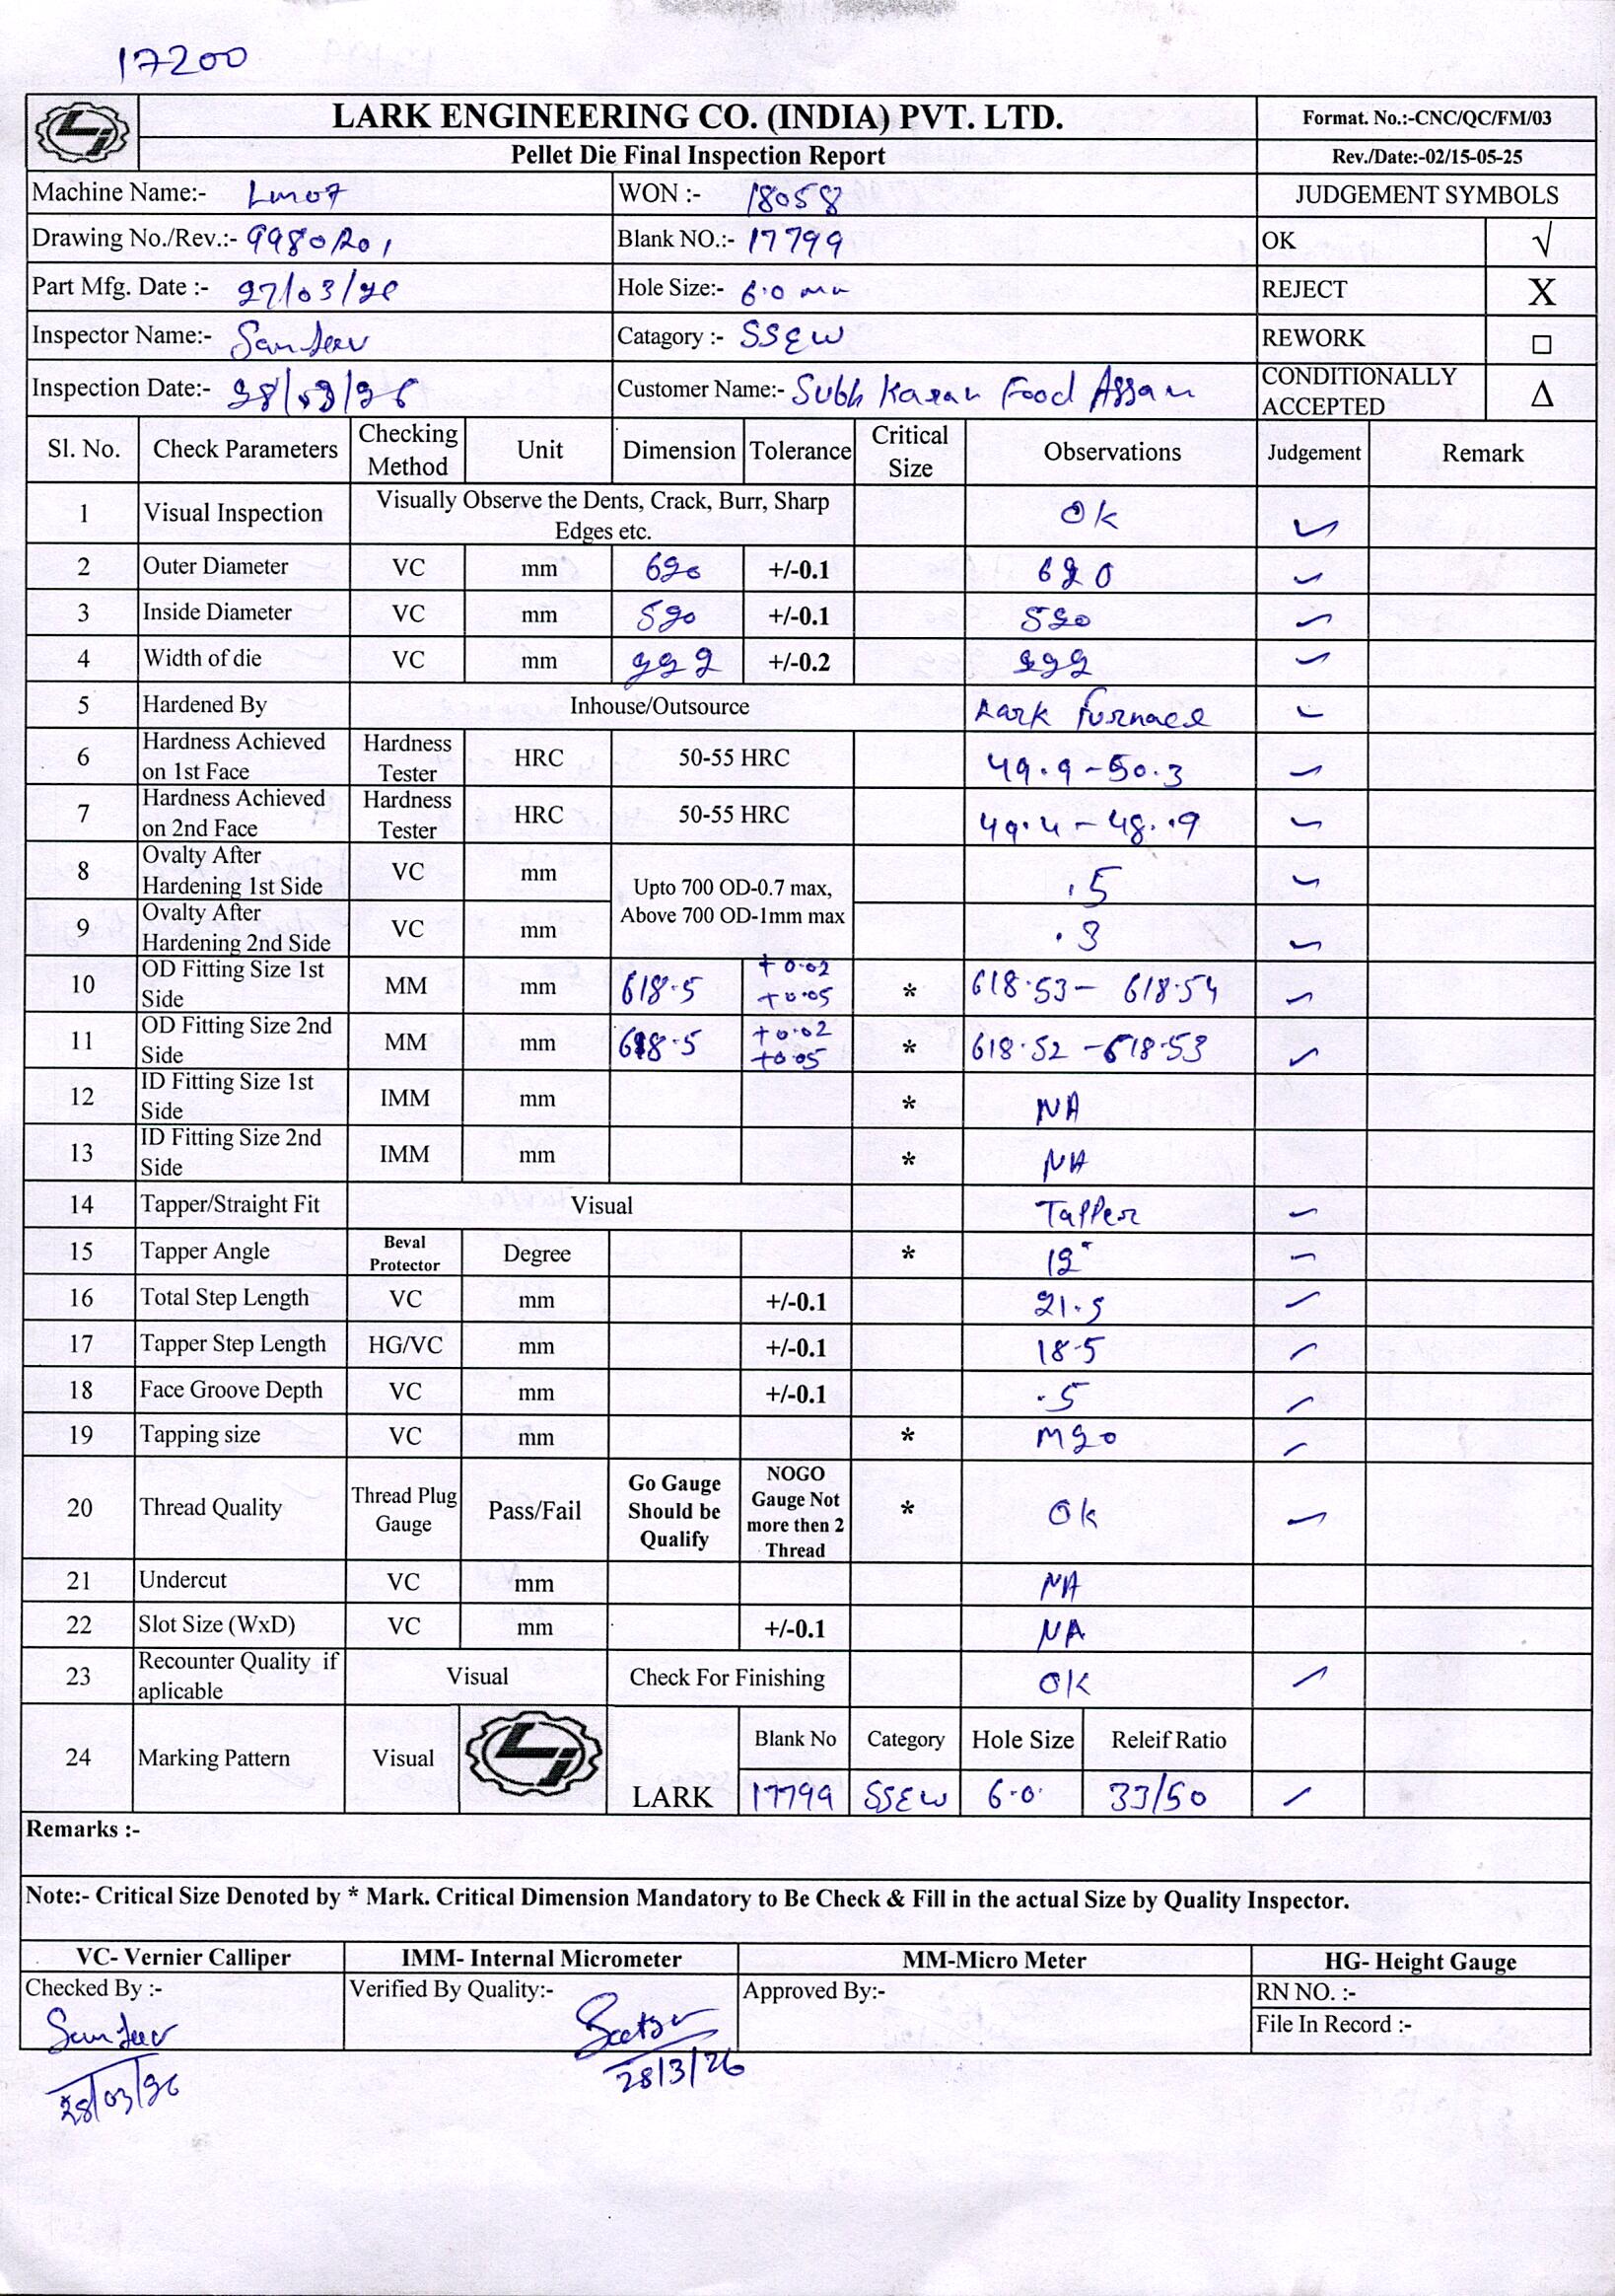 17200
LARK ENGINEERING CO. (INDIA) PVT. LTD.
Format. No.:-CNC/QC/FM/03
Pellet Die Final Inspection Report
Rev./Date:-02/15-05-25
Machine Name:- Lm07 WON :- 18058 JUDGEMENT SYMBOLS
Drawing No./Rev.:- 9980R01 Blank NO.:- 17799 OK √
Part Mfg. Date :- 27/03/26 Hole Size:- 6.0 mm REJECT X
Inspector Name:- Sanjeev Catagory :- SSEW REWORK □
Inspection Date:- 28/03/26 Customer Name:- Subh Karan Food Assam CONDITIONALLY ACCEPTED Δ
Sl. No. Check Parameters Checking Method Unit Dimension Tolerance Critical Size Observations Judgement Remark
1 Visual Inspection Visually Observe the Dents, Crack, Burr, Sharp Edges etc. Ok ✓
2 Outer Diameter VC mm 620 +/-0.1 620 ✓
3 Inside Diameter VC mm 520 +/-0.1 520 ✓
4 Width of die VC mm 222 +/-0.2 222 ✓
5 Hardened By Inhouse/Outsource Lark Furnace ✓
6 Hardness Achieved on 1st Face Hardness Tester HRC 50-55 HRC 49.9-50.3 ✓
7 Hardness Achieved on 2nd Face Hardness Tester HRC 50-55 HRC 49.4-48.9 ✓
8 Ovalty After Hardening 1st Side VC mm Upto 700 OD-0.7 max, Above 700 OD-1mm max .5 ✓
9 Ovalty After Hardening 2nd Side VC mm .3 ✓
10 OD Fitting Size 1st Side MM mm 618.5 +0.02 +0.05 * 618.53- 618.54 ✓
11 OD Fitting Size 2nd Side MM mm 618.5 +0.02 +0.05 * 618.52-618.53 ✓
12 ID Fitting Size 1st Side IMM mm * NA
13 ID Fitting Size 2nd Side IMM mm * NA
14 Tapper/Straight Fit Visual Tapper ✓
15 Tapper Angle Beval Protector Degree * 12° ✓
16 Total Step Length VC mm +/-0.1 21.5 ✓
17 Tapper Step Length HG/VC mm +/-0.1 18.5 ✓
18 Face Groove Depth VC mm +/-0.1 .5 ✓
19 Tapping size VC mm * M20 ✓
20 Thread Quality Thread Plug Gauge Pass/Fail Go Gauge Should be Qualify NOGO Gauge Not more then 2 Thread * Ok ✓
21 Undercut VC mm NA
22 Slot Size (WxD) VC mm +/-0.1 NA
23 Recounter Quality if aplicable Visual Check For Finishing Ok ✓
24 Marking Pattern Visual LARK Blank No Category Hole Size Releif Ratio
17799 SSEW 6.0 33/50 ✓
Remarks :-
Note:- Critical Size Denoted by * Mark. Critical Dimension Mandatory to Be Check & Fill in the actual Size by Quality Inspector.
VC- Vernier Calliper IMM- Internal Micrometer MM-Micro Meter HG- Height Gauge
Checked By :- Verified By Quality:- Approved By:- RN NO. :-
File In Record :-
Sanjeev
28/03/26 28/3/26